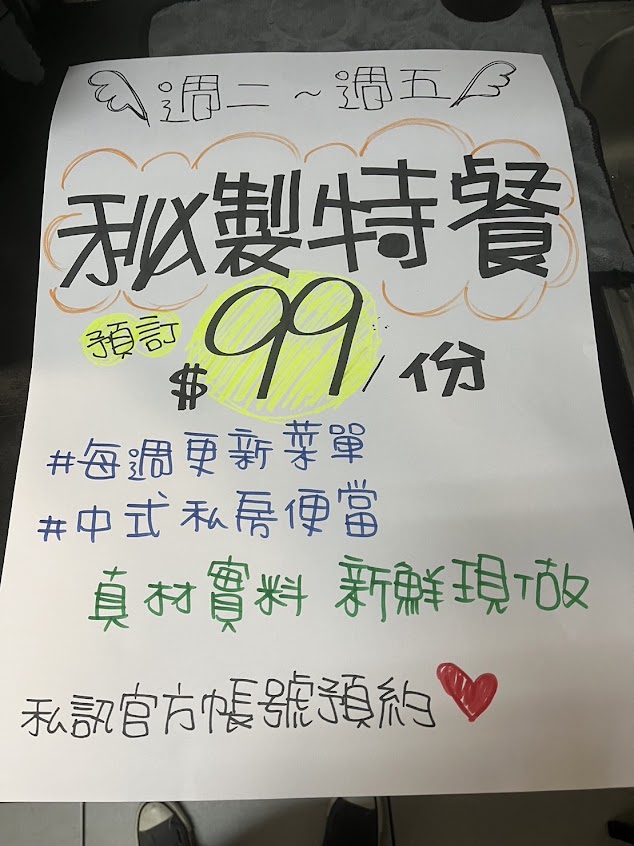 週二~週五
秘製特餐
預訂 $99/份
#每週更新菜單
#中式私房便當
真材實料 新鮮現做
私訊官方帳號預約